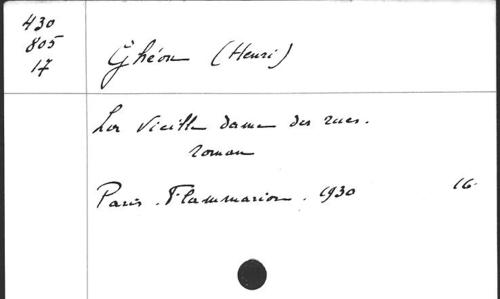 430
805
17
Ghéon (Henri)
La vieille dame des rues.
roman
Paris. Flammarion. 1930 16.